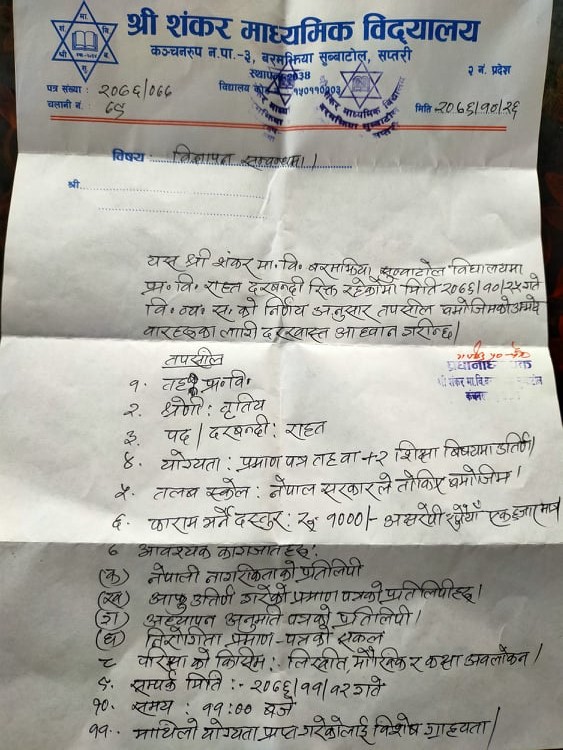 श्री शंकर माध्यमिक विद्यालय
कञ्चनरुप न.पा.-३, बरमझिया सुब्बाटोल, सप्तरी
स्थापना 2038
२ नं. प्रदेश
पत्र संख्या : २०७६/०७७
विद्यालय कोड
चलानी नं. : ८९
मिति :- २०७६/१०/२६
विषय : विज्ञापन सम्बन्धमा।
श्री
यस श्री शंकर मा. वि. बरमझिया, सुब्बाटोल विद्यालयमा
प्रा. वि. राहत दरबन्दी रिक्त रहेकोमा मिति २०७६/१०/२५ गते
वि. व्य. स. को निर्णय अनुसार तपसील बमोजिमको उम्मेद
वारहरुका लागी दरखास्त आह्वान गरीन्छ।
तपसील
प्रधानाध्यापक
श्री शंकर मा.वि.
१. तह प्रा.वि.
२. श्रेणी : तृतिय
३. पद / दरबन्दी : राहत
४. योग्यता : प्रमाण पत्र तह वा +२ शिक्षा बिषयमा उतिर्ण।
५. तलब स्केल : नेपाल सरकारले तोकिए बमोजिम।
६. फाराम भर्ने दस्तुर : रु. १०००/- अक्षरेपी रुपैयाँ एक हजार मात्र
७ आवश्यक कागजातहरु :
(क) नेपाली नागरिकताको प्रतिलिपी
(ख) आफु उतिर्ण गरेको प्रमाण पत्रको प्रतिलिपीहरु।
(ग) अध्यापन अनुमति पत्रको प्रतिलिपी।
(घ) निरोगिता प्रमाण-पत्रको सक्कल
८ परिक्षा को किसिम : लिखीत, मौखिक र कक्षा अवलोकन।
९. सम्पर्क मिति :- २०७६/११/१२ गते
१०. समय : ११:०० बजे
११. माथिलो योग्यता प्राप्त गरेकोलाई विशेष ग्राह्यता।